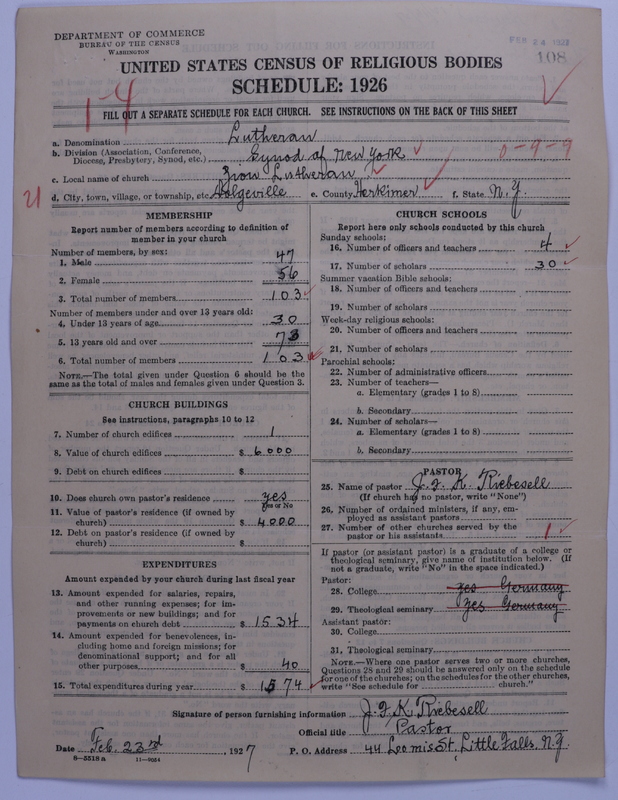 DEPARTMENT OF COMMERCE
BUREAU OF THE CENSUS
WASHINGTON
FEB 24 1927
108
UNITED STATES CENSUS OF RELIGIOUS BODIES
SCHEDULE: 1926
1-4
FILL OUT A SEPARATE SCHEDULE FOR EACH CHURCH. SEE INSTRUCTIONS ON THE BACK OF THIS SHEET
a. Denomination Lutheran
b. Division (Association, Conference, Diocese, Presbytery, Synod, etc.) Synod of New York 0-9-9
c. Local name of church Zion Lutheran
21 d. City, town, village, or township, etc. Dolgeville e. County Herkimer f. State N.Y.
MEMBERSHIP
Report number of members according to definition of
member in your church
Number of members, by sex:
1. Male 47
2. Female 56
3. Total number of members 103
Number of members under and over 13 years old:
4. Under 13 years of age 30
5. 13 years old and over 73
6. Total number of members 103
NOTE.—The total given under Question 6 should be the
same as the total of males and females given under Question 3.
CHURCH BUILDINGS
See instructions, paragraphs 10 to 12
7. Number of church edifices 1
8. Value of church edifices $ 6000
9. Debt on church edifices $
10. Does church own pastor's residence yes
Yes or No
11. Value of pastor's residence (if owned by
church) $ 4000
12. Debt on pastor's residence (if owned by
church) $
EXPENDITURES
Amount expended by your church during last fiscal year
13. Amount expended for salaries, repairs,
and other running expenses; for im-
provements or new buildings; and for
payments on church debt $ 1534
14. Amount expended for benevolences, in-
cluding home and foreign missions; for
denominational support; and for all
other purposes $ 40
15. Total expenditures during year $ 1574
CHURCH SCHOOLS
Report here only schools conducted by this church
Sunday schools:
16. Number of officers and teachers 4
17. Number of scholars 30
Summer vacation Bible schools:
18. Number of officers and teachers
19. Number of scholars
Week-day religious schools:
20. Number of officers and teachers
21. Number of scholars
Parochial schools:
22. Number of administrative officers
23. Number of teachers—
a. Elementary (grades 1 to 8)
b. Secondary
24. Number of scholars—
a. Elementary (grades 1 to 8)
b. Secondary
PASTOR
25. Name of pastor J. F. K. Riebesell
(If church has no pastor, write "None")
26. Number of ordained ministers, if any, em-
ployed as assistant pastors
27. Number of other churches served by the
pastor or his assistants 1
If pastor (or assistant pastor) is a graduate of a college or
theological seminary, give name of institution below. (If
not a graduate, write "No" in the space indicated.)
Pastor:
28. College yes Germany
29. Theological seminary yes Germany
Assistant pastor:
30. College
31. Theological seminary
NOTE.—Where one pastor serves two or more churches,
Questions 28 and 29 should be answered only on the schedule
for one of the churches; on the schedules for the other churches,
write "See schedule for church."
Signature of person furnishing information J. F. K. Riebesell
Official title Pastor
Date Feb. 23rd 1927 P. O. Address 44 Loomis St. Little Falls, N.Y.
8-5518 a 11-9054